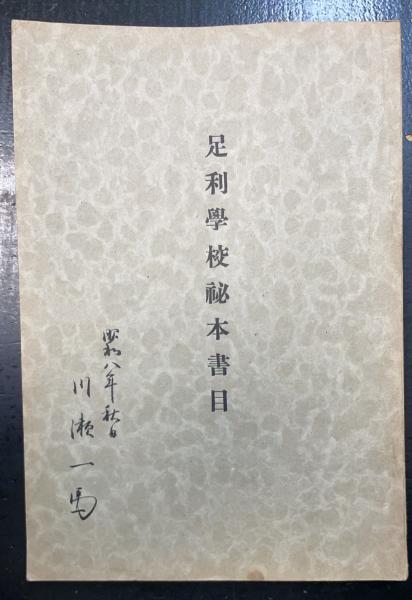 足利學校祕本書目
昭和八年秋日
川瀬一馬